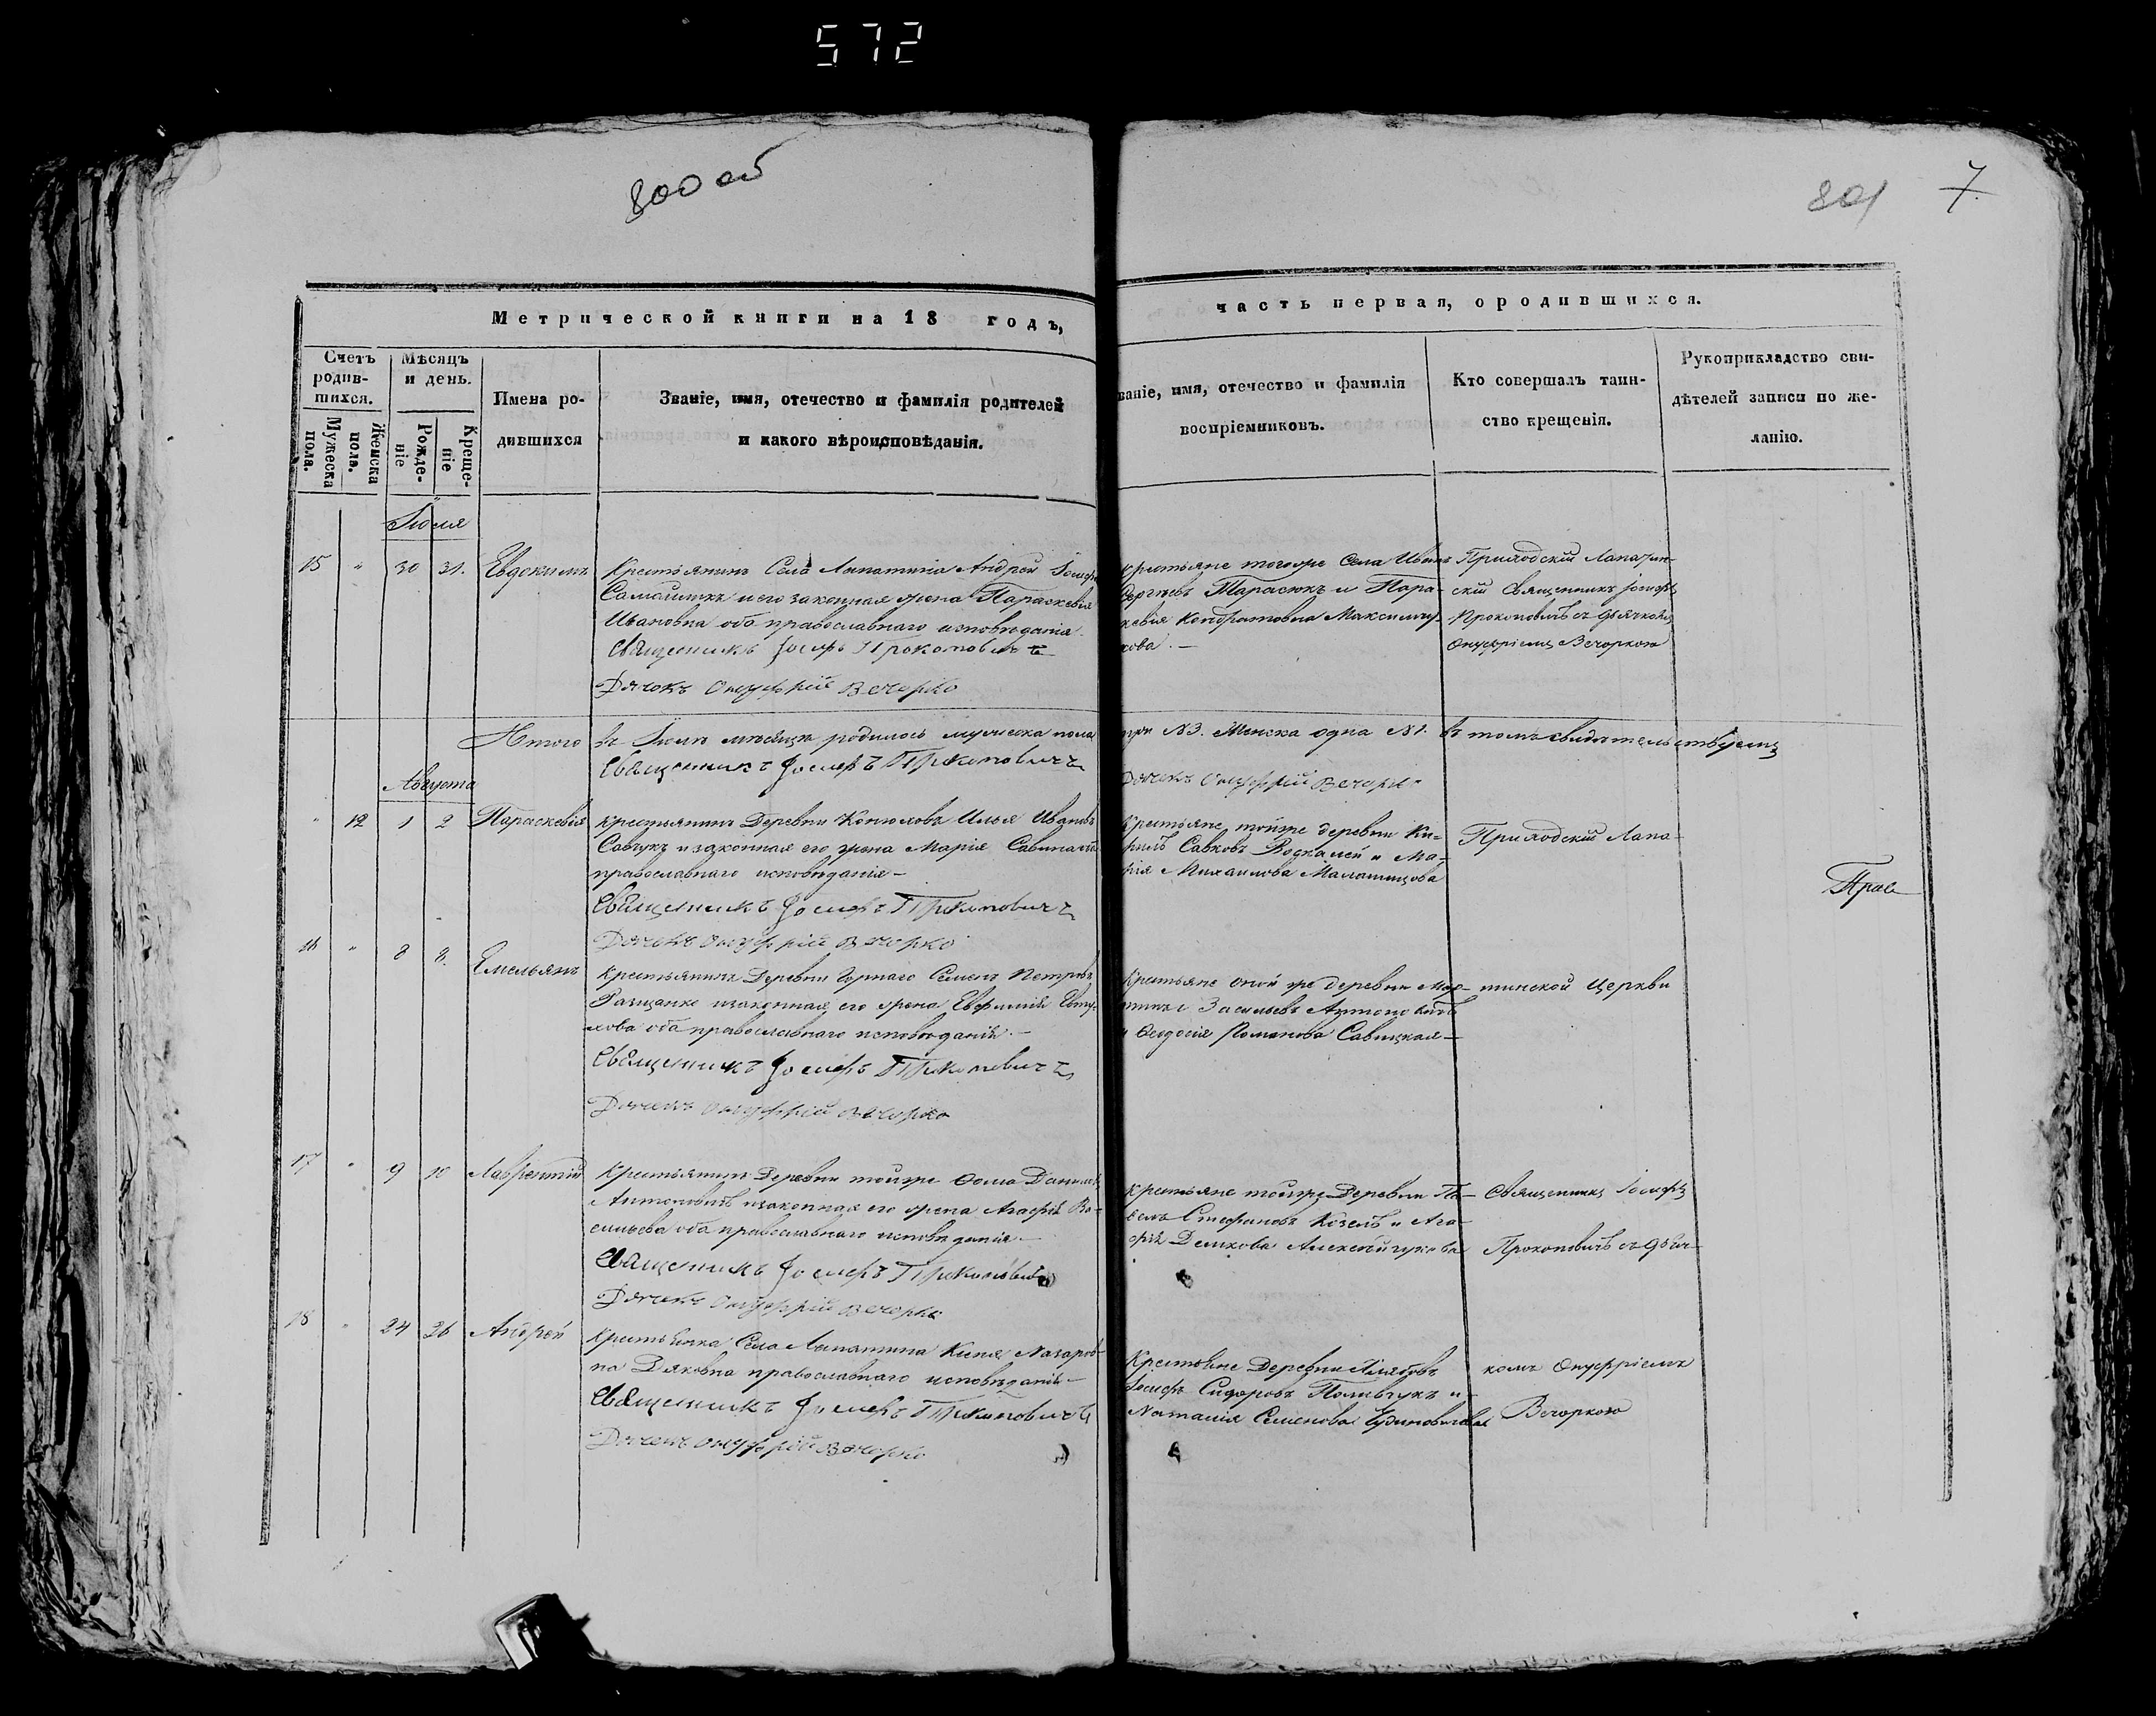 572
800 об
801 7
Метрической книги на 18 годъ,
часть первая, о родившихся.
Счетъ родив-шихся.
Мужеска пола.
Женска пола.
Мѣсяцъ и день.
Рожде-ніе
Креще-ніе
Имена ро-
дившихся
Званіе, имя, отечество и фамилія родителей
и какого вѣроисповѣданія.
ваніе, имя, отечество и фамилія
воспріемниковъ.
Кто совершалъ таин-
ство крещенія.
Рукоприкладство сви-
дѣтелей записи по же-
ланію.
Іюля
15 " 30 31. Евдокимъ
Крестьянинъ Села Лапатина Андрей Іосиф
и его законная жена Параскевія
Ивановна оба православнаго исповѣданія
Священникъ Іосифъ Прокоповичъ
Дячокъ Онуфрій Вечорко
крестьяне тогоже Села Иванъ
Сергѣевъ Тарасюкъ и Пара-
кевія Кондратовна Максимч
кова. —
Приходскій Лапатин-
скій Священникъ Іосифъ
Прокоповичъ съ дьячкомъ
Онуфріемъ Вечоркою
Итого въ Іюлѣ мѣсяцѣ родилось мужеска пола
три N3. Женска одна N1. въ томъ свидѣтельствуемъ
Священникъ Іосифъ Прокоповичъ
Дячекъ Онуфрій Вечорко
Августа
" 12 1 2 Параскевія
крестьянинъ Деревни Конюховъ Илья Ивановъ
Савчукъ и законная его жена Марія
православнаго исповѣданія —
Священникъ Іосифъ Прокоповичъ
Дячекъ Онуфрій Вечорко
Крестьяне тойже деревни Ки-
рилъ Савковъ и Ма-
рія Михаилова
Приходскій Лапа-
Прав
16 " 8 8. Емельянъ
крестьянинъ Деревни Горнаго Семенъ Петровъ
и законная его жена Евфимія
хова оба православнаго исповѣданія. —
Священникъ Іосифъ Прокоповичъ
Дячекъ Онуфрій Вечорко
Крестьяне оной же деревни Мар-
тинъ Васильевъ
и Феодосія Романова Савицкая —
тинской Церкви
17 " 9 10 Лаврентій
Крестьянинъ Деревни тойже Фома Данилов
Антоновичъ и законная его жена Агафія Ва-
сильева оба православнаго исповѣданія —
Священникъ Іосифъ Прокоповичъ
Дячекъ Онуфрій Вечорко
крестьяне тойже Деревни Па-
велъ Стефановъ Козелъ и Ага-
фія Демкова
Священникъ Іосифъ
Прокоповичъ съ дьяч-
18 " 24 26 Андрей
Крестьянка Села Лапатина Назаров-
на православнаго исповѣданія —
Священникъ Іосифъ Прокоповичъ
Дячекъ Онуфрій Вечорко
Крестьяне Деревни
Іосифъ Сидоровъ и
Наталія Семенова
комъ Онуфріемъ
Вечоркою